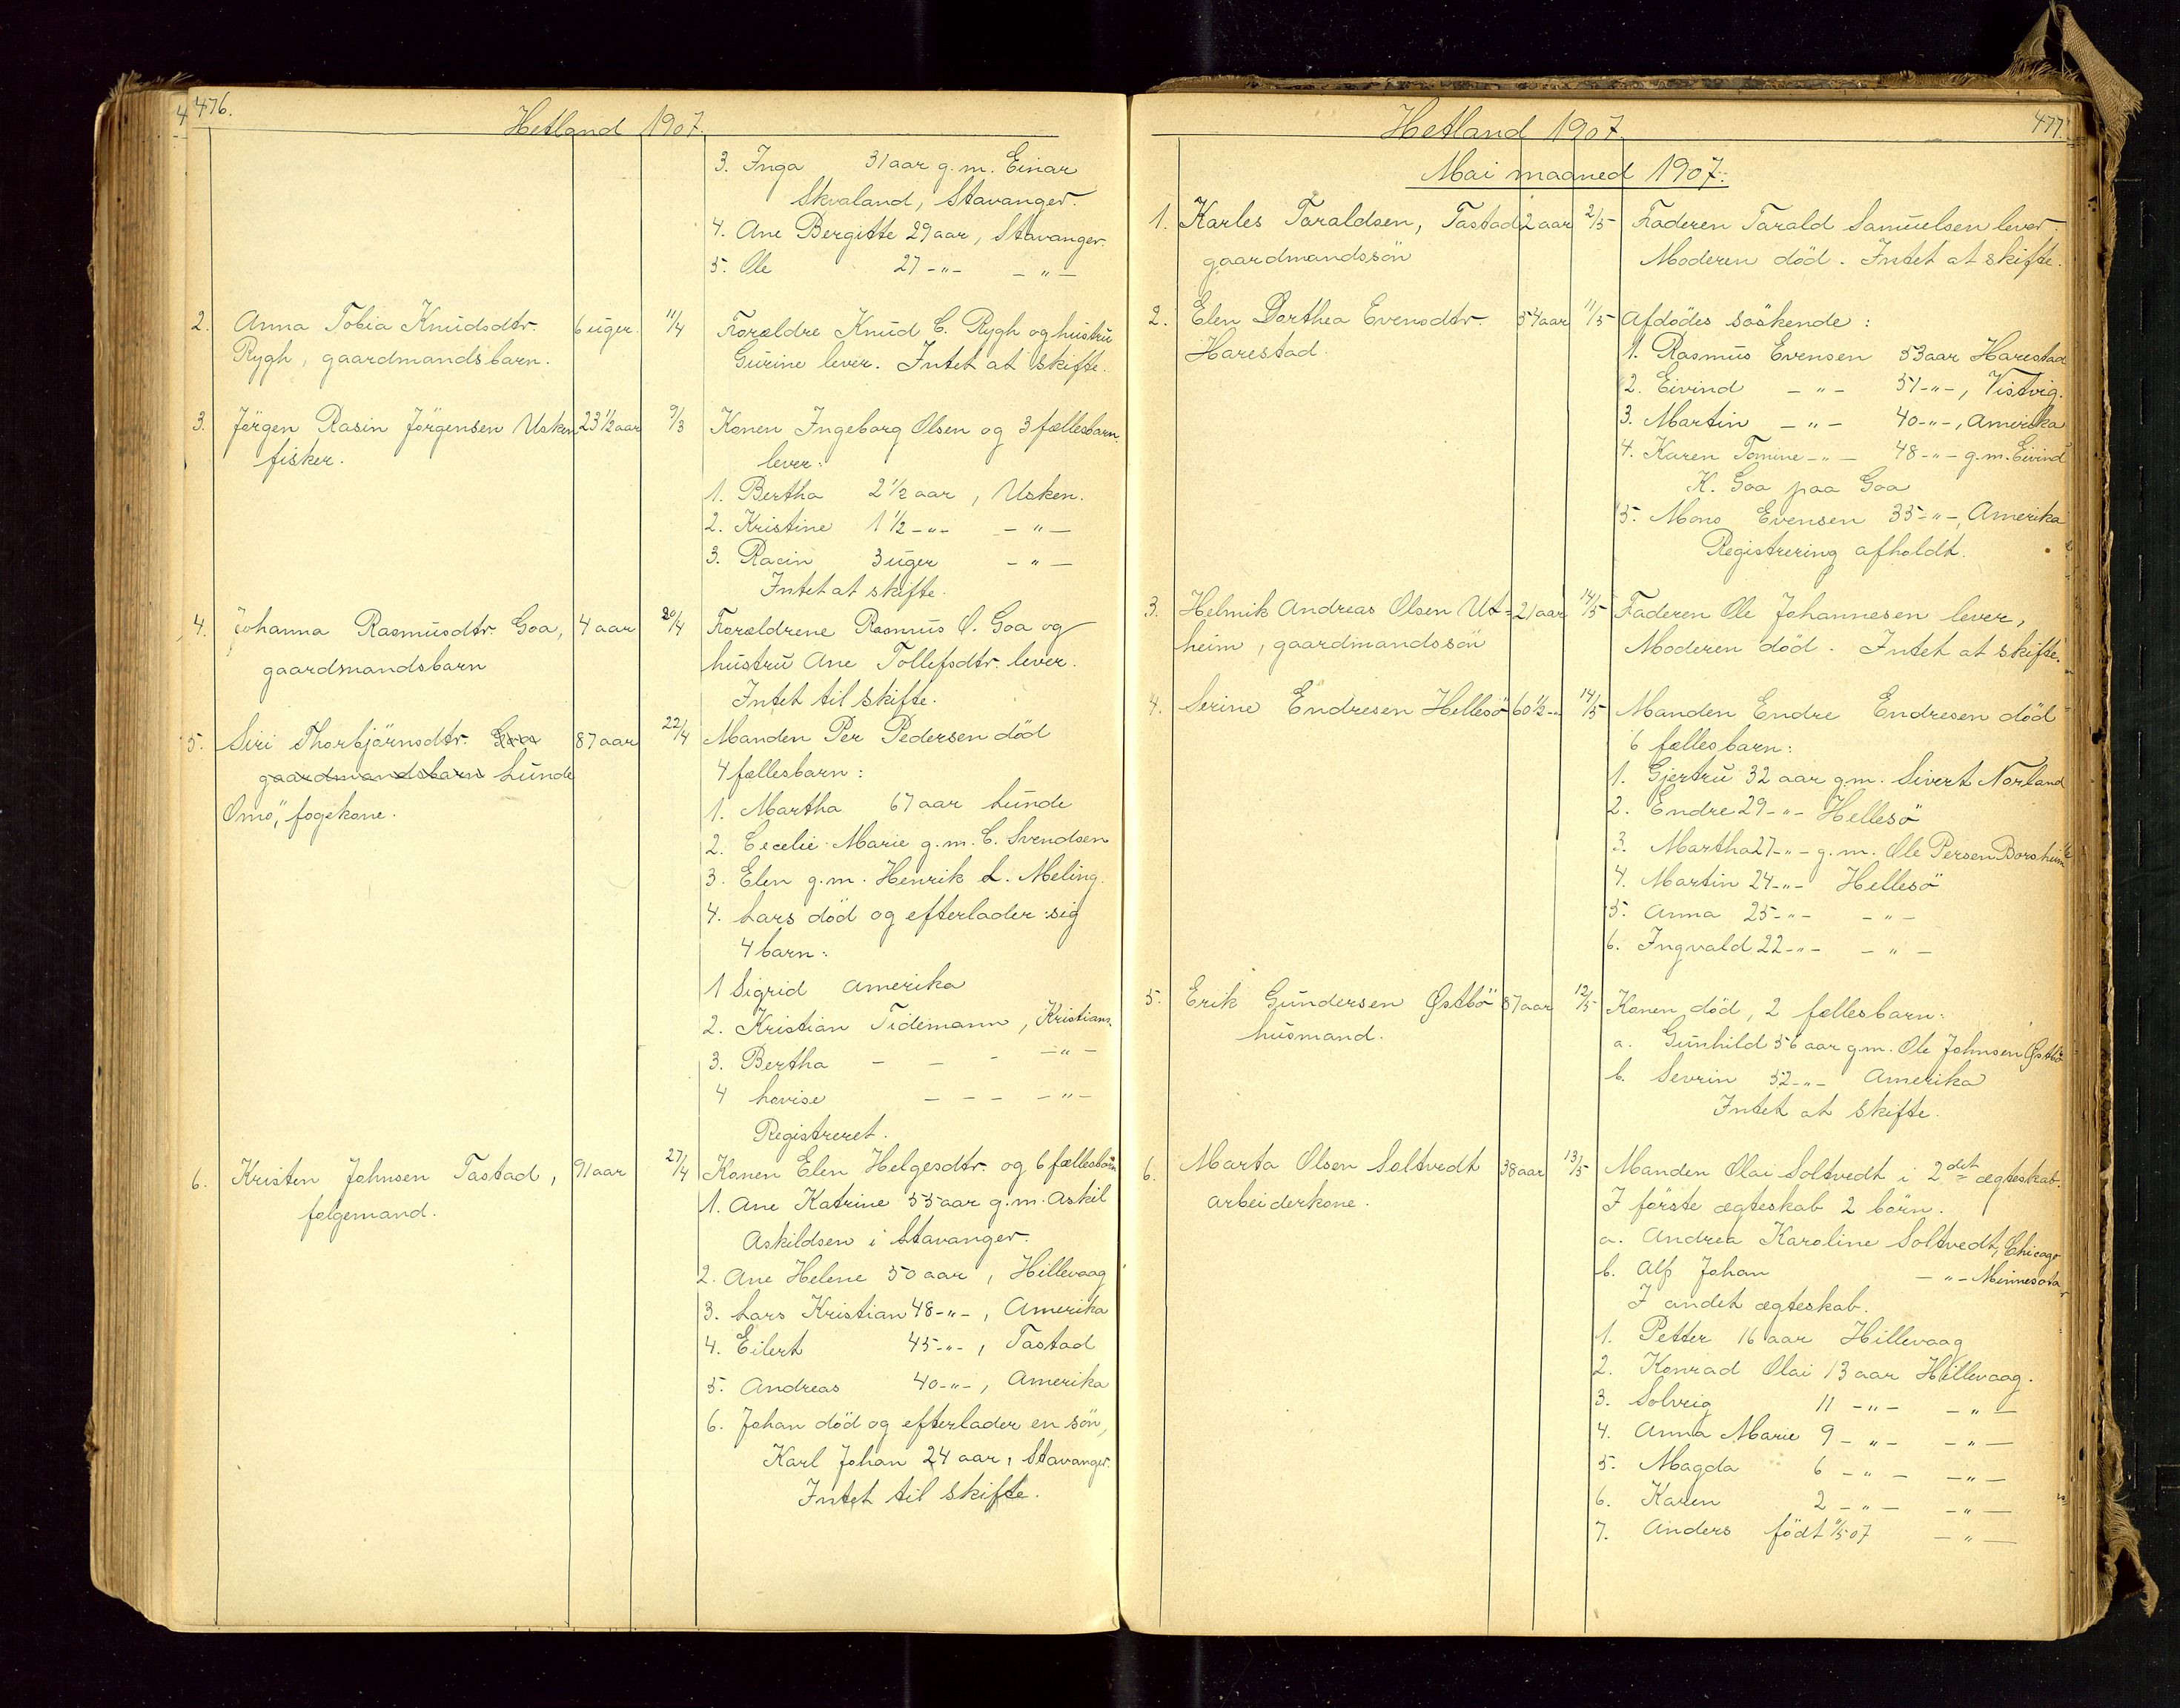 476.
Hetland 1907.
3. Inga 31 aar g. m. Einar
Skvaland, Stavanger.
4. Ane Bergitte 29 aar, Stavanger.
5. Ole 27 -"- -"-
2. Anna Tobia Knudsdtr. 6 uger. 11/4 Forældre Knud C. Rygh og hustru
Rygh, gaardmandsbarn. Gurine lever. Intet at skifte.
3. Jörgen Rasin Jörgensen Usken 23 1/2 aar 9/3 Konen Ingeborg Olsen og 3 fællesbarn
fisker. lever:
1. Bertha 2 1/2 aar, Usken.
2. Kristine 1 1/2 -"- -"-
3. Racin 3 uger -"-
Intet at skifte.
4. Johanna Rasmusdtr. Goa, 4 aar 20/4 Forældrene Rasmus O. Goa og
gaardmandsbarn hustru Ane Tollefsdtr. lever.
Intet til skifte.
5. Siri Thorbjörnsdtr. Goa 87 aar 22/4 Manden Per Pedersen död
gaardmandsbarn Lunde 4 fællesbarn:
Omö, fogekone. 1. Martha 67 aar Lunde
2. Cecelie Marie g. m. C. Svendsen
3. Elen g. m. Henrik L. Meling.
4. Lars död og efterlader sig
4 barn:
1 Sigrid Amerika
2. Kristian Tidemann, Kristians.
3. Bertha - - - -"-
4 Lovise - - - -"-
Registreret.
6. Kristen Johnsen Tastad, 91 aar 27/4 Konen Elen Helgesdtr. og 6 fællesbörn
følgemand. 1. Ane Katrine 55 aar g. m. Askil
Askildsen i Stavanger.
2. Ane Helene 50 aar, Hillevaag
3. Lars Kristian 48 -"-, Amerika
4. Eilert 45 -"-, Tastad
5. Andreas 40 -"-, Amerika
6. Johan död og efterlader en sön,
Karl Johan 24 aar, Stavanger.
Intet til skifte.
477.
Hetland 1907.
Mai maaned 1907.
1. Karles Taraldsen, Tastad 2 aar 2/5 Faderen Tarald Samuelsen lever.
gaardmandssön Moderen död. Intet at skifte.
2. Elen Dorthea Evensdtr. 54 aar 11/5 Afdödes söskende:
Harestad. 1. Rasmus Evensen 53 aar Harestad
2. Eivind -"- 51 -"-, Vistvig.
3. Martin -"- 40 -"-, Amerika
4. Karen Tomine -"- 48 -"- g. m. Eivind
K. Goa paa Goa
5. Mons Evensen 35 -"-, Amerika
Registrering afholdt.
3. Helmik Andreas Olsen Ut= 21 aar 14/5 Faderen Ole Johannesen lever,
heim, gaardmandssön Moderen död. Intet at skifte.
4. Serine Endresen Hellesö 60 1/2 -"- 14/5 Manden Endre Endresen död
6 fællesbarn:
1. Gjertru 32 aar g. m. Sivert Norland
2. Endre 29 -"- Hellesö
3. Martha 27 -"- g. m. Ole Persen Borsheim
4. Martin 24 -"- Hellesö
5. Anna 25 -"- -"-
6. Ingvald 22 -"- -"-
5. Erik Gundersen Østbö 87 aar 12/5 Konen död, 2 fællesbarn:
husmand. a. Gunhild 56 aar g. m. Ole Johnsen Østbö
b. Sevrin 52 -"- Amerika
Intet at skifte.
6. Marta Olsen Soltvedt 38 aar 13/5 Manden Olai Soltvedt i 2det ægteskab.
arbeiderkone. I förste ægteskab 2 börn.
a. Andrea Karoline Soltvedt, Chicago
b. Alf Johan -"- Minnesota
I andet ægteskab.
1. Petter 16 aar Hillevaag
2. Konrad Olai 13 aar Hillevaag.
3. Solveig 11 -"- -"-
4. Anna Marie 9 -"- -"-
5. Magda 6 -"- -"-
6. Karen 2 -"- -"-
7. Anders födt 1/5 07 -"-